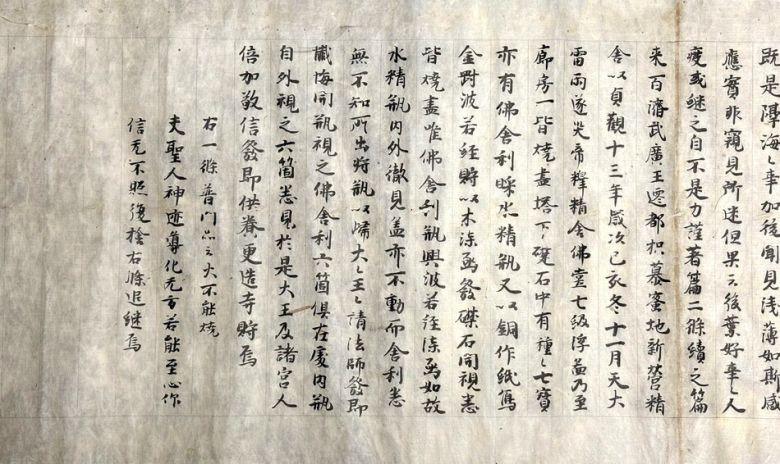 既是隔海之事加復聞見浅薄如斯感
應實非窺見所迷但畢云後葉好事之人
廋或継之自不是力謹著篇二條續之篇
来百濟武廣王遷都枳慕蜜地新營精
舍以貞觀十三年歳次己亥冬十一月天大
雷雨遂灾帝釋精舍佛堂七級浮啚乃至
廊房一皆燒盡塔下礎石中有種〻七寳
亦有佛舍利䀽水精瓶又以銅作紙寫
金剛波若経貯以木漆函發礎石開視悉
皆燒盡唯佛舍利瓶興波若経漆函如故
水精瓶内外徹見盖亦不動而舍利悉
無不知所出将瓶以歸大〻王〻請法師發即
懺悔開瓶視之佛舍利六箇俱在處内瓶
自外視之六箇悉見於是大王及諸宮人
倍加敬信發即供養更造寺貯焉
右一條普門品云火不能燒
夫聖人神迹導化无方若能至心作
信无不照復捨右條追継焉